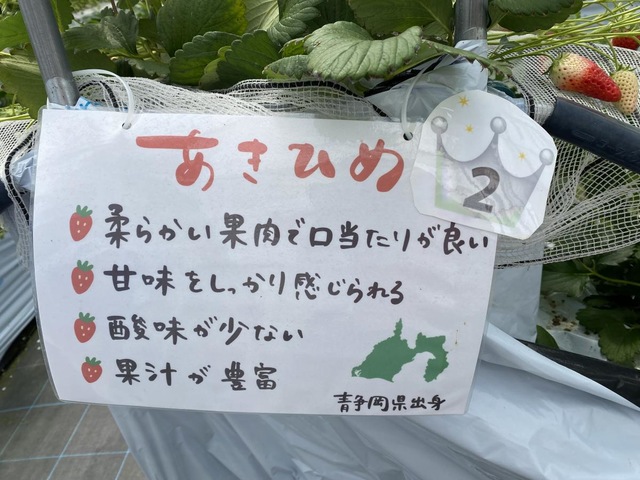 あきひめ
2
柔らかい果肉で口当たりが良い
甘味をしっかり感じられる
酸味が少ない
果汁が豊富
静岡県出身